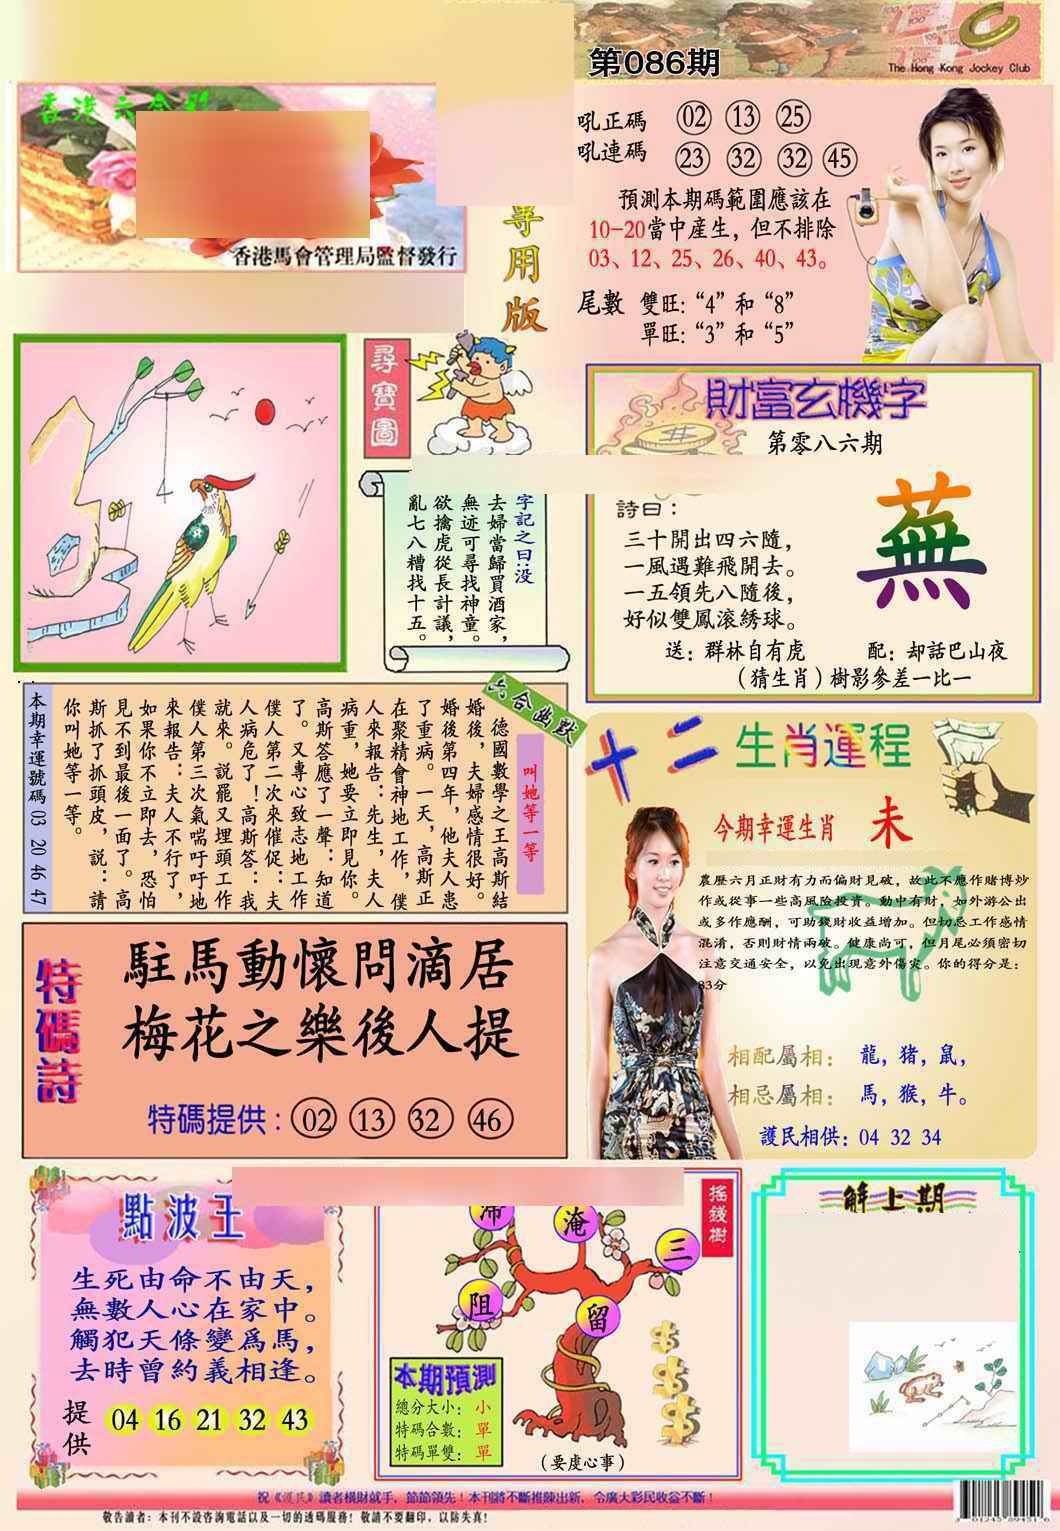 第086期
The Hong Kong Jockey Club
香港六合彩
香港馬會管理局監督發行
專用版
吼正碼 02 13 25
吼連碼 23 32 32 45
預測本期碼範圍應該在
10-20當中産生，但不排除
03、12、25、26、40、43。
尾數 雙旺：“4”和“8”
單旺：“3”和“5”
尋寶圖
字記之曰:没
去婦當歸買酒家，
無迹可尋找神童。
欲擒虎從長計議，
亂七八糟找十五。
財富玄機字
第零八六期
詩曰：
三十開出四六隨，
一風遇難飛開去。
一五領先八隨後，
好似雙鳳滚綉球。
蕪
送：群林自有虎 配：却話巴山夜
（猜生肖）樹影參差一比一
六合幽默
叫她等一等
德國數學之王高斯結
婚後，夫婦感情很好。
婚後第四年，他夫人患
了重病。一天，高斯正
在聚精會神地工作，僕
人來報告：先生，夫人
病重，她要立即見你。
高斯答應了一聲：知道
了。又專心致志地工作
僕人第二次來催促：夫
人病危了！高斯答：我
就來。説罷又埋頭工作
僕人第三次氣喘吁吁地
來報告：夫人不行了，
如果你不立即去，恐怕
見不到最後一面了。高
斯抓了抓頭皮，説：請
你叫她等一等。
本期幸運號碼 03 20 46 47
十二生肖運程
今期幸運生肖 未
農歷六月正財有力而偏財見破，故此不應作賭博炒
作或從事一些高風險投資。動中有財，如外游公出
或多作應酬，可助錢財收益增加。但切忌工作感情
混淆，否則財情兩破。健康尚可，但月尾必須密切
注意交通安全，以免出現意外傷灾。你的得分是：
83分
相配屬相： 龍，猪，鼠，
相忌屬相： 馬，猴，牛。
護民相供：04 32 34
特碼詩
駐馬動懷問滴居
梅花之樂後人提
特碼提供：02 13 32 46
點波王
生死由命不由天，
無數人心在家中。
觸犯天條變爲馬，
去時曾約義相逢。
提供 04 16 21 32 43
搖錢樹
滯
淹
三
阻
留
本期預測
總分大小：小
特碼合數：單
特碼單雙：單
（要虔心事）
解上期
祝《護民》讀者横財就手，節節領先！本刊將不斷推陳出新，令廣大彩民收益不斷！
敬告讀者：本刊不設咨詢電話以及一切的透碼服務！敬請不要翻印，以防失真！